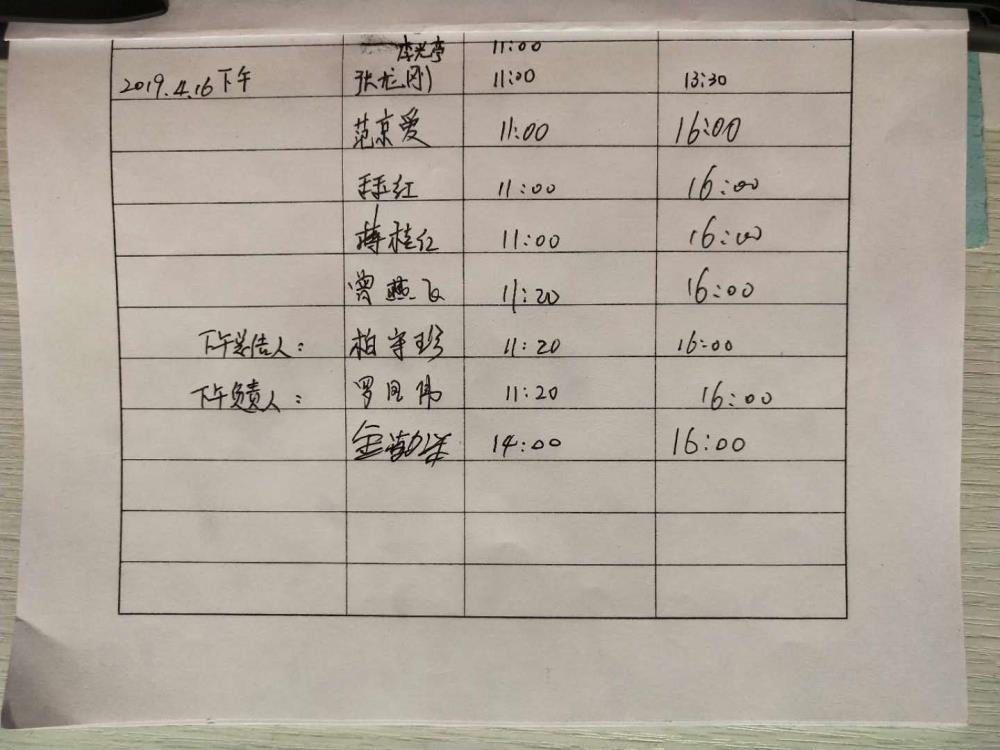 李光亭 11:00
2019.4.16下午 张龙刚 11:00 13:30
范京爱 11:00 16:00
红 11:00 16:00
蒋桂红 11:00 16:00
曾燕飞 11:20 16:00
下午 告人： 柏守珍 11:20 16:00
下午负责人： 罗 伟 11:20 16:00
金 14:00 16:00